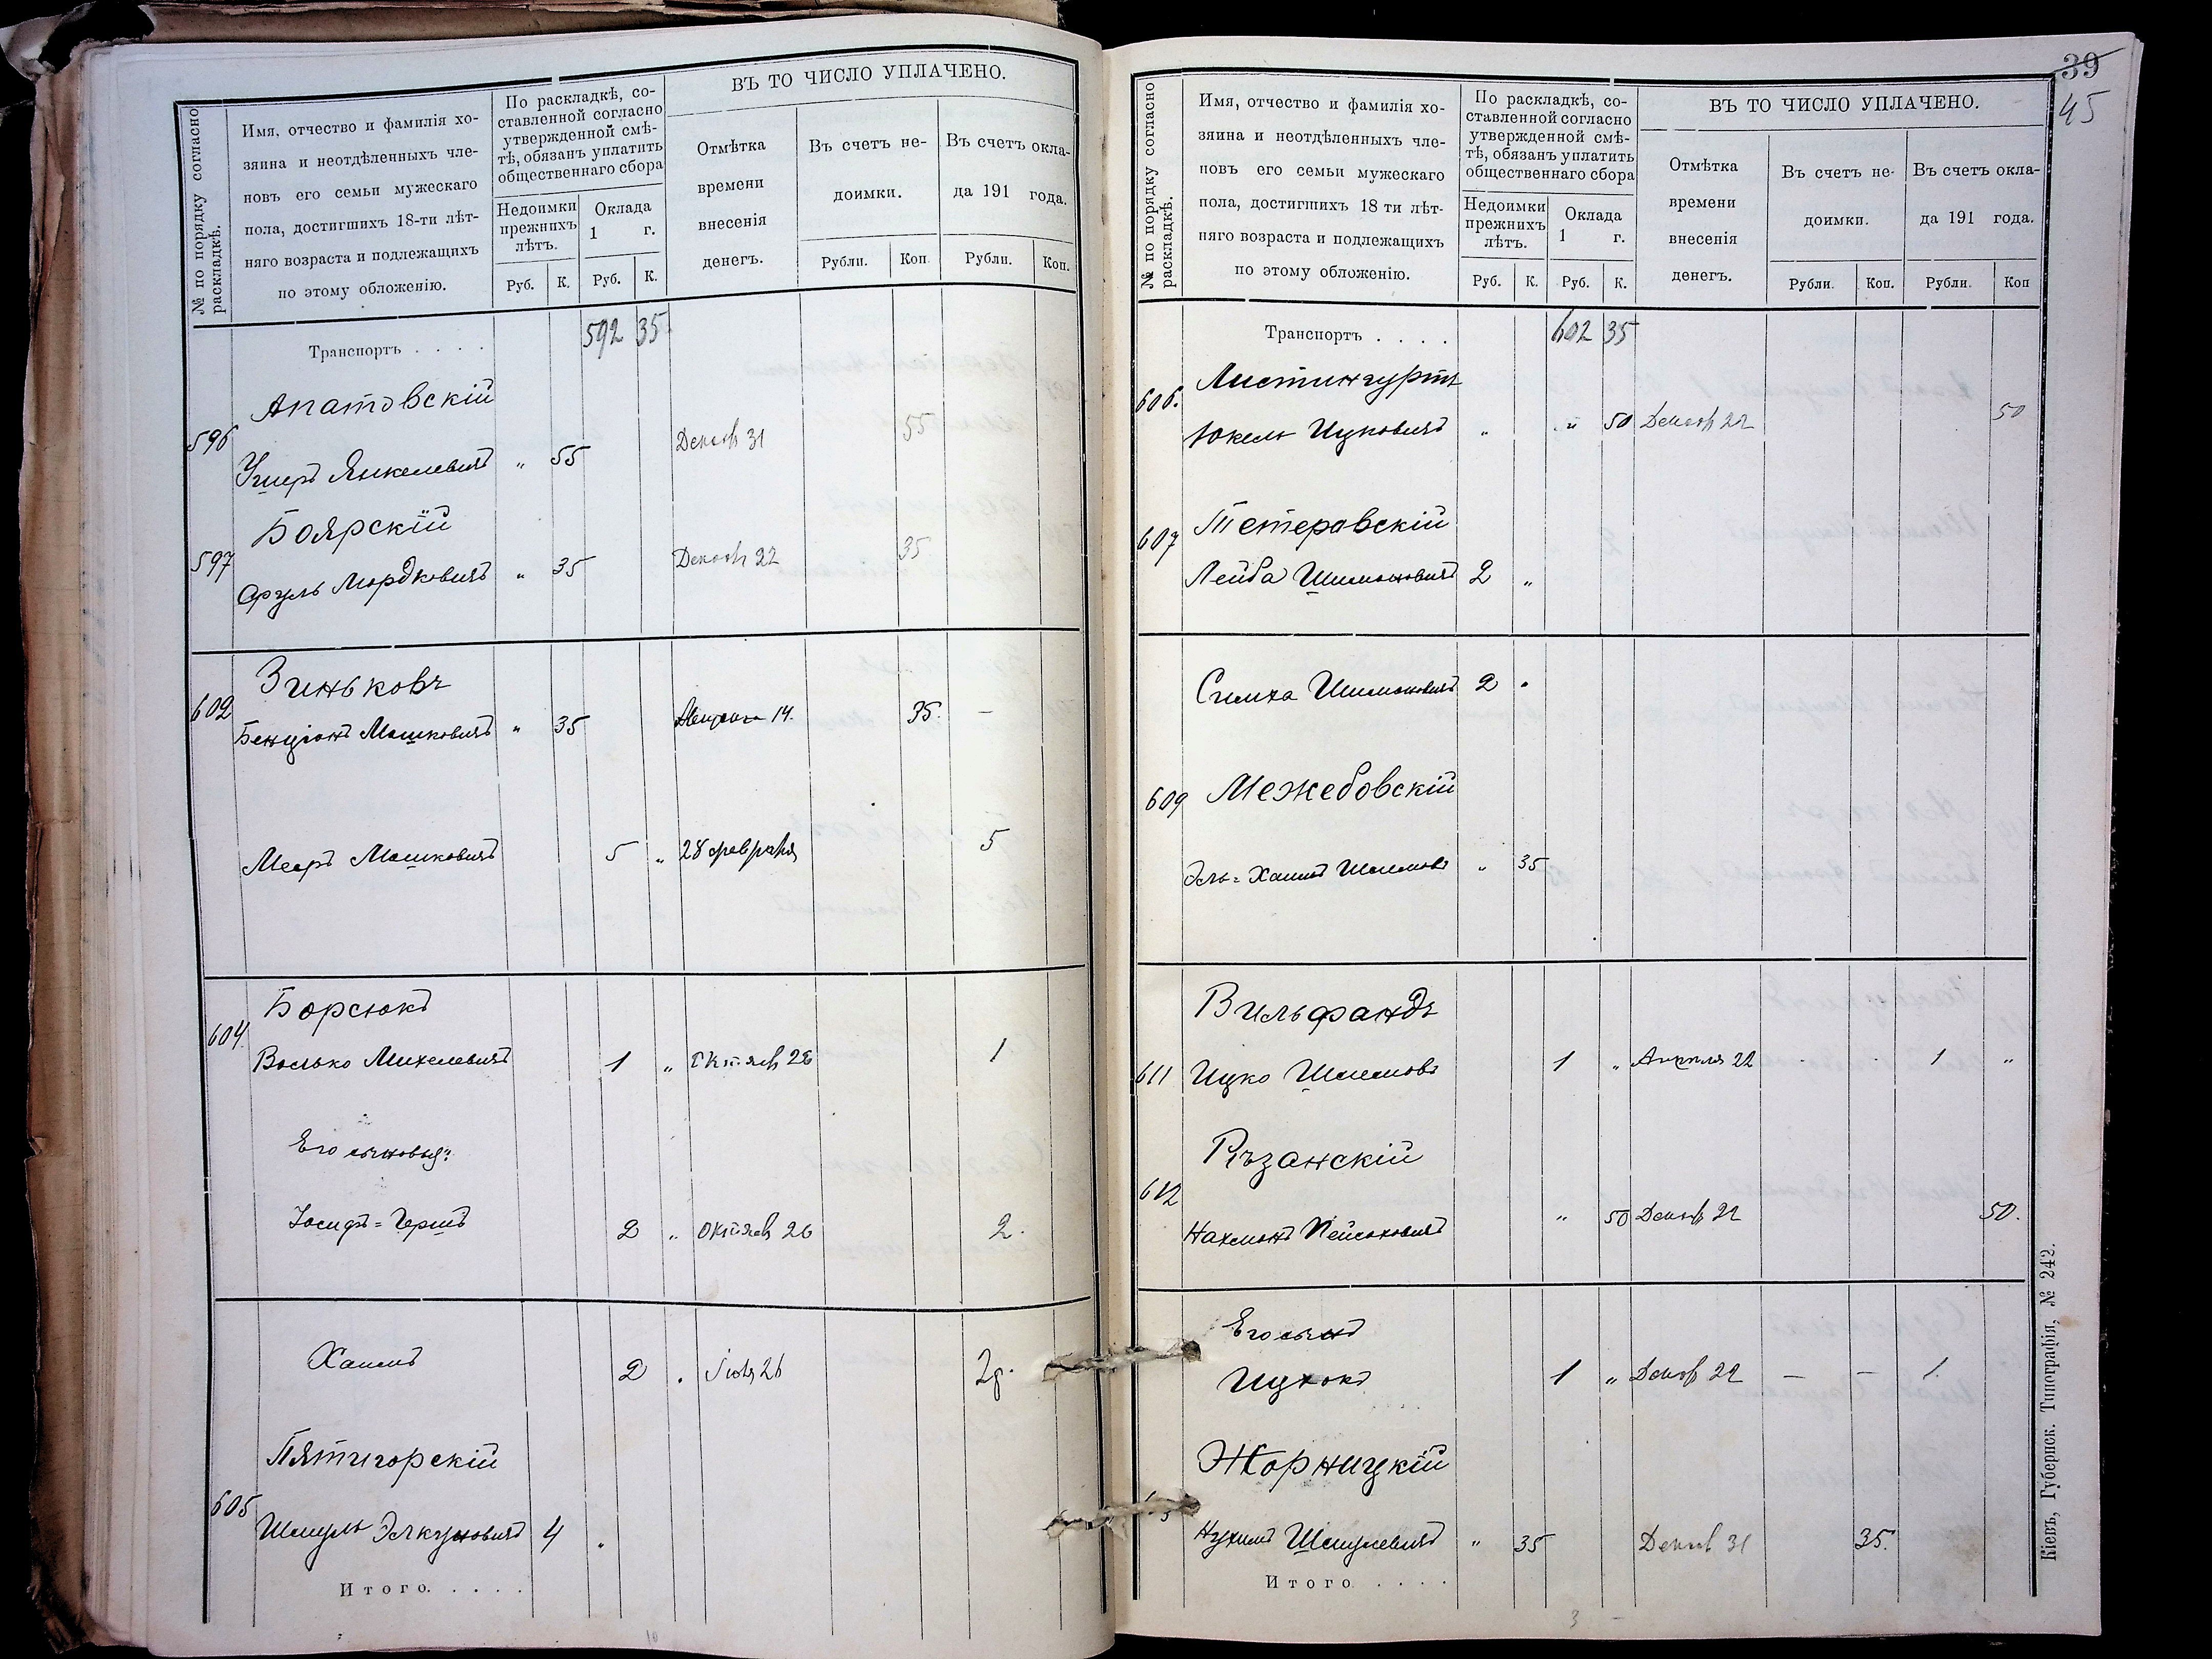 № по порядку согласно раскладкѣ.
Имя, отчество и фамилія хо-
зяина и неотдѣленныхъ чле-
новъ его семьи мужескаго
пола, достигшихъ 18-ти лѣт-
няго возраста и подлежащихъ
по этому обложенію.
По раскладкѣ, со-
ставленной согласно
утвержденной смѣ-
тѣ, обязанъ уплатить
общественнаго сбора
Недоимки
прежнихъ
лѣтъ.
Оклада
1 г.
Руб. К. Руб. К.
ВЪ ТО ЧИСЛО УПЛАЧЕНО.
Отмѣтка
времени
внесенія
денегъ.
Въ счетъ не-
доимки.
Въ счетъ окла-
да 191 года.
Рубли. Коп. Рубли. Коп.
Транспортъ . . . . 592 35
Апатовскій
596 Ушеръ Янкелевичъ " 55 Декаб 31 55
Боярскій
597 Сруль Мордковичъ " 35 Декаб 22 35
Зиньковъ
602 Бенціонъ Мошковичъ " 35 14. 35. —
Мееръ Мошковичъ 5 " 28 февраля 5
Борсюкъ
604. Волько Михелевичъ 1 " Октяб 26 1
Его сыновья:
Іосифъ=Гершъ 2 " Октяб 26 2.
Хаимъ 2 . 26
Пятигорскій
605 Шмуль Элкуновичъ 4 .
Итого. . . . .
10
39
45
№ по порядку согласно раскладкѣ.
Имя, отчество и фамилія хо-
зяина и неотдѣленныхъ чле-
новъ его семьи мужескаго
пола, достигшихъ 18 ти лѣт-
няго возраста и подлежащихъ
по этому обложенію.
По раскладкѣ, со-
ставленной согласно
утвержденной смѣ-
тѣ, обязанъ уплатить
общественнаго сбора
Недоимки
прежнихъ
лѣтъ.
Оклада
1 г.
Руб. К. Руб. К.
ВЪ ТО ЧИСЛО УПЛАЧЕНО.
Отмѣтка
времени
внесенія
денегъ.
Въ счетъ не-
доимки.
Въ счетъ окла-
да 191 года.
Рубли. Коп. Рубли. Коп
Транспортъ . . . . 602 35
Листингуртъ
606. Юкель Ицковичъ " " 50 Декаб 22 50
607 Тетеравскій
Лейба Шимоновичъ 2 "
Симха Шимоновичъ 2 "
609 Межебовскій
Эль=Хаимъ Шоимовъ " 35
Вильфандъ
611 Ицко Шоимовъ 1 " Апрѣля 22 1 "
Рѣзанскій
612 Нахманъ Пейсаховичъ " 50 Декаб 22 50.
Его сынъ
Ицхокъ 1 " Декаб 22 — — 1.
Жорницкій
Нухимъ Шмулевичъ " 35 Декаб 31 35.
Итого . . . .
3
Кіевъ, Губернск. Типографія, № 242.